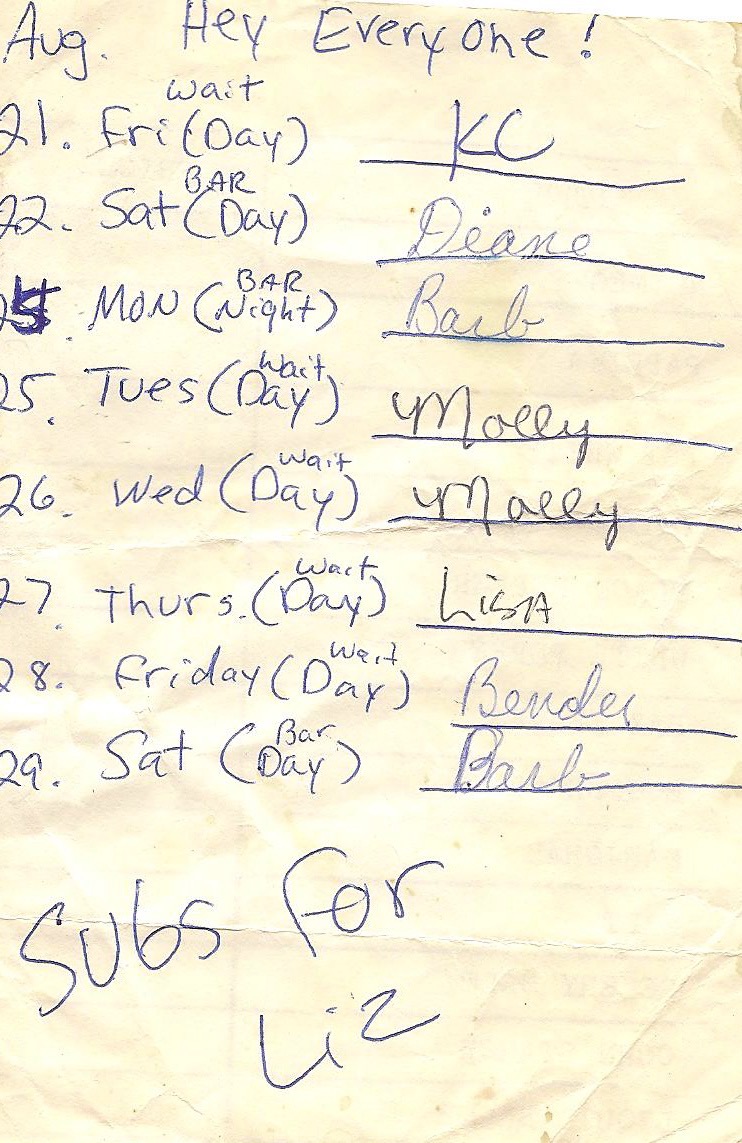 Aug. Hey Everyone!
Wait
21. Fri (Day) KC
BAR
22. Sat (Day) Diane
BAR
24. MON (Night) Barb
Wait
25. Tues (Day) Molly
Wait
26. Wed (Day) Molly
Wait
27. Thurs. (Day) LisA
Wait
28. Friday (Day) Bender
Bar
29. Sat (Day) Barb
Subs For
Liz